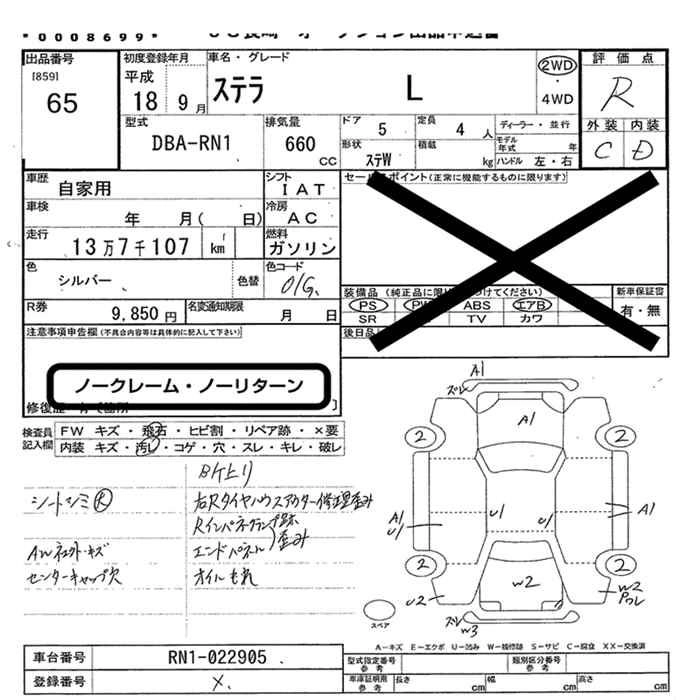 *0008699*
出品番号
[859]
65
初度登録年月
平成
18 9月
車名・グレード
ステラ L
2WD
・
4WD
評価点
R
外装 内装
C D
型式
DBA-RN1
排気量
660
CC
ドア
5
定員
4 人
形状
ステW
積載
kg
ディーラー・並行
モデル
年式 年
ハンドル 左・右
車歴
自家用
シフト
I AT
車検
年 月( 日)
冷房
AC
走行
13万7千107 km
燃料
ガソリン
色
シルバー 色替
色コード
01G
R券
9,850円
名変通知期限
月 日
セールスポイント(正常に機能するものに限ります)
装備品
PS PW ABS エアB
SR TV カワ
新車保証書
有・無
後日品
注意事項申告欄(不具合内容等は具体的に記入して下さい)
ノークレーム・ノーリターン
検査員
記入欄
FW キズ・飛石・ヒビ割・リペア跡・×要
内装 キズ・汚レ・コゲ・穴・スレ・キレ・破レ
シートシミ大
右Rタイヤハウスアウター修理歪み
Rインパネクランプ跡
エンドパネル 歪み
オイルもれ
センターキャップ欠
A1
ズレ
A1
2
2
A1
U1
U1
U1
A1
2
2
W2
U2
W2
ズレ
W3
スペア
A-キズ E-エクボ U-凹み W-補修跡 S-サビ C-腐食 XX-交換済
車台番号
RN1-022905
登録番号
X
型式指定番号
参考
類別区分番号
参考
車庫証明用
参考
長さ cm
幅 cm
高さ cm